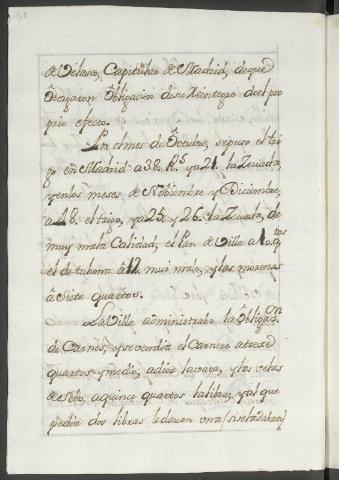 de Velasco, Capitular de Madrid, de que
Otorgaron Obligacion de su Reintegro de el pro
prio efecto.
Por el mes de Octubre, se puso el tri
go en Madrid a 38 R.s y a 21 la Zevada,
y en los meses de Nobiembre y Diciembre,
a 48 el trigo, y a 25 y 26 la Zevada, de
muy mala Calidad, el Pan de Villa a 10 q.tos
el de tahona à 12 mui malo, y las morenas
à siete quartos.
La Villa administraba la Obligaz.on
de Carnes, y se vendia el Carnero a treze
quartos y medio, a diez la vaca, y las velas
de Sebo, a quince quartos la libra, y al que
pedia dos libras le davan una (si se la daban)